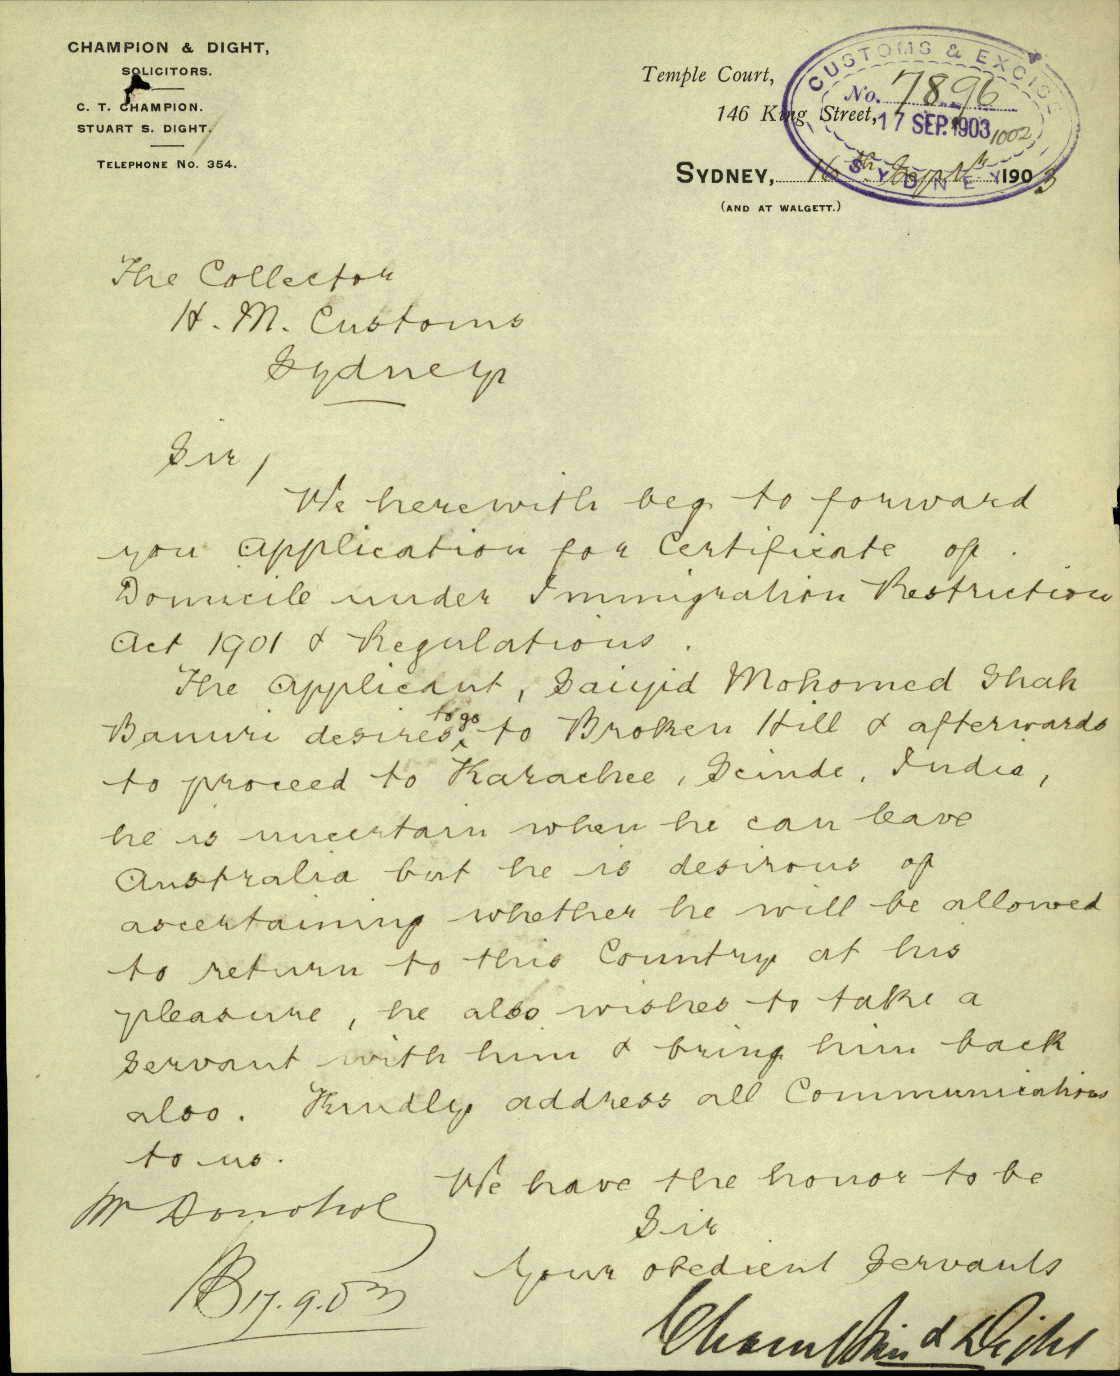 CHAMPION & DIGHT,
SOLICITORS.
C. T. CHAMPION.
STUART S. DIGHT.
TELEPHONE No. 354.
Temple Court,
146 King Street,
SYDNEY, 16th Septr 1903
(AND AT WALGETT.)
CUSTOMS & EXCISE
No. 7896
17 SEP. 1903
1002
SYDNEY
The Collector
H. M. Customs
Sydney
Sir,
We herewith beg to forward
you Application for Certificate of
Domicile under Immigration Restriction
Act 1901 & Regulations.
The Applicant, Saiyid Mohomed Shah
Banuri desires to go to Broken Hill & afterwards
to proceed to Karachee, Scinde, India,
he is uncertain when he can leave
Australia but he is desirous of
ascertaining whether he will be allowed
to return to this Country at his
pleasure, he also wishes to take a
servant with him & bring him back
also. Kindly address all Communications
to us.
We have the honor to be
Sir
Your obedient Servants
Champion & Dight
Mr Donohoe
17.9.03